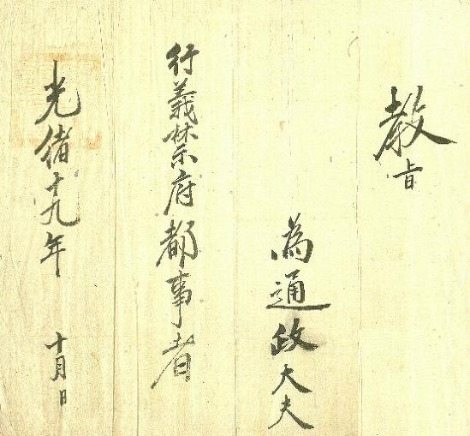 教旨
為通政大夫
行義禁府都事者
光緒十九年 十月日